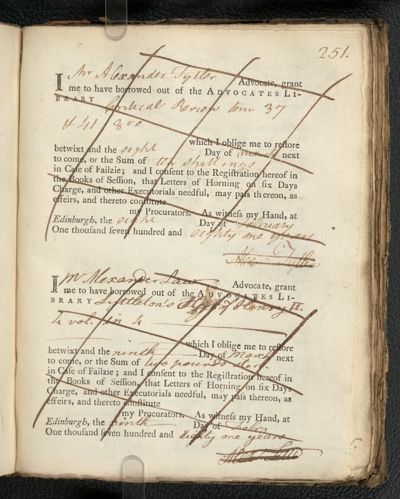 251.
I Mr Alexander Tytler Advocate, grant
me to have borrowed out of the ADVOCATES LI-
BRARY Critical Review tom 37
& 41 8vo
which I oblige me to restore
betwixt and the eight Day of March next
to come, or the Sum of ten shillings
in Case of Failzie; and I consent to the Registration hereof in
the Books of Session, that Letters of Horning on six Days
Charge, and other Executorials needful, may pass thereon, as
effeirs, and thereto constitute
my Procurators. As witness my Hand, at
Edinburgh, the eight Day of February
One thousand seven hundred and eighty one years
Alex Tytler
I Mr Alexander Law Advocate, grant
me to have borrowed out of the ADVOCATES LI-
BRARY Lyttleton's History Henry II.
4 vol. in 4
which I oblige me to restore
betwixt and the ninth Day of March next
to come, or the Sum of two pounds ster
in Case of Failzie; and I consent to the Registration hereof in
the Books of Session, that Letters of Horning on six Days
Charge, and other Executorials needful, may pass thereon, as
effeirs, and thereto constitute
my Procurators. As witness my Hand, at
Edinburgh, the ninth Day of Febry
One thousand seven hundred and Eighty one years